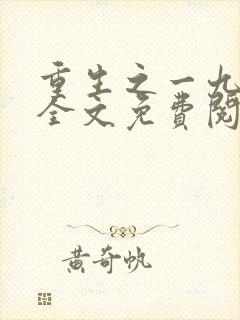 重生之一九
全文免费阅
黄奇帆